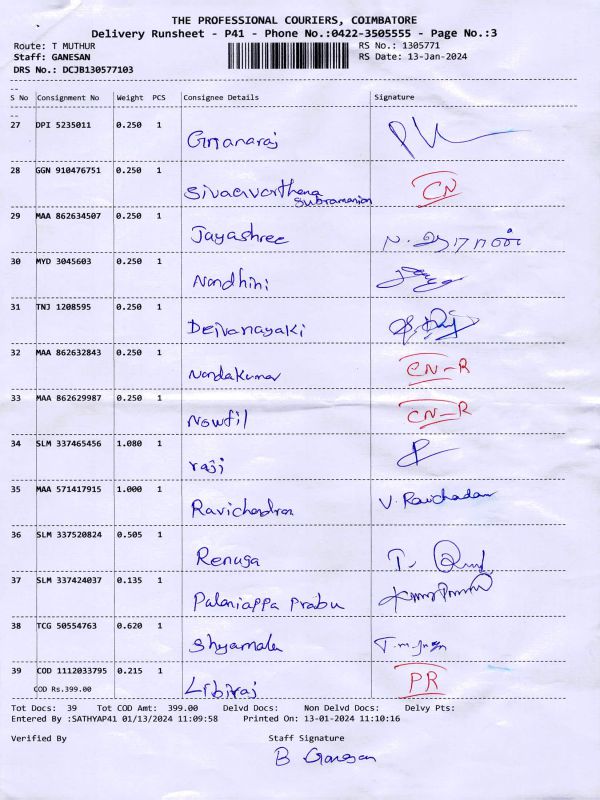 THE PROFESSIONAL COURIERS, COIMBATORE
Delivery Runsheet - P41 - Phone No.:0422-3505555 - Page No.:3
Route: T MUTHUR RS No.: 1305771
Staff: GANESAN RS Date: 13-Jan-2024
DRS No.: DCJB130577103
S No Consignment No Weight PCS Consignee Details Signature
27 DPI 5235011 0.250 1 Gnanaraj
28 GGN 910476751 0.250 1 Sivaavarthena CN
Subramanian
29 MAA 862634507 0.250 1 Jayashree
30 MYD 3045603 0.250 1 Nandhini
31 TNJ 1208595 0.250 1 Deivanayaki
32 MAA 862632843 0.250 1 Nandakumar CN-R
33 MAA 862629987 0.250 1 Nowfil CN-R
34 SLM 337465456 1.080 1 raji
35 MAA 571417915 1.000 1 Ravichandran V. Ravichadan
36 SLM 337520824 0.505 1 Renuga
37 SLM 337424037 0.135 1 Palaniappa Prabu
38 TCG 50554763 0.620 1 Shyamala
39 COD 1112033795 0.215 1 Libiraj PR
COD Rs.399.00
Tot Docs: 39 Tot COD Amt: 399.00 Delvd Docs: Non Delvd Docs: Delvy Pts:
Entered By :SATHYAP41 01/13/2024 11:09:58 Printed On: 13-01-2024 11:10:16
Verified By Staff Signature
B Ganesan